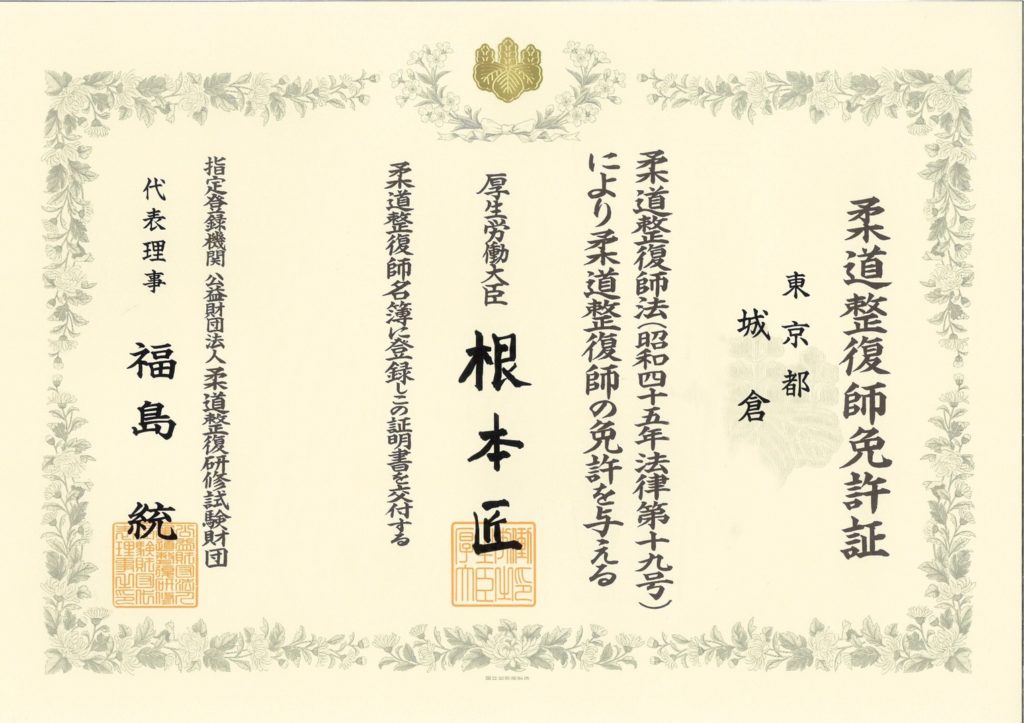 柔道整復師免許証
東京都
城倉
柔道整復師法(昭和四十五年法律第十九号)
により柔道整復師の免許を与える
厚生労働大臣 根本匠
柔道整復師名簿に登録しこの証明書を交付する
指定登録機関 公益財団法人 柔道整復研修試験財団
代表理事 福島 統